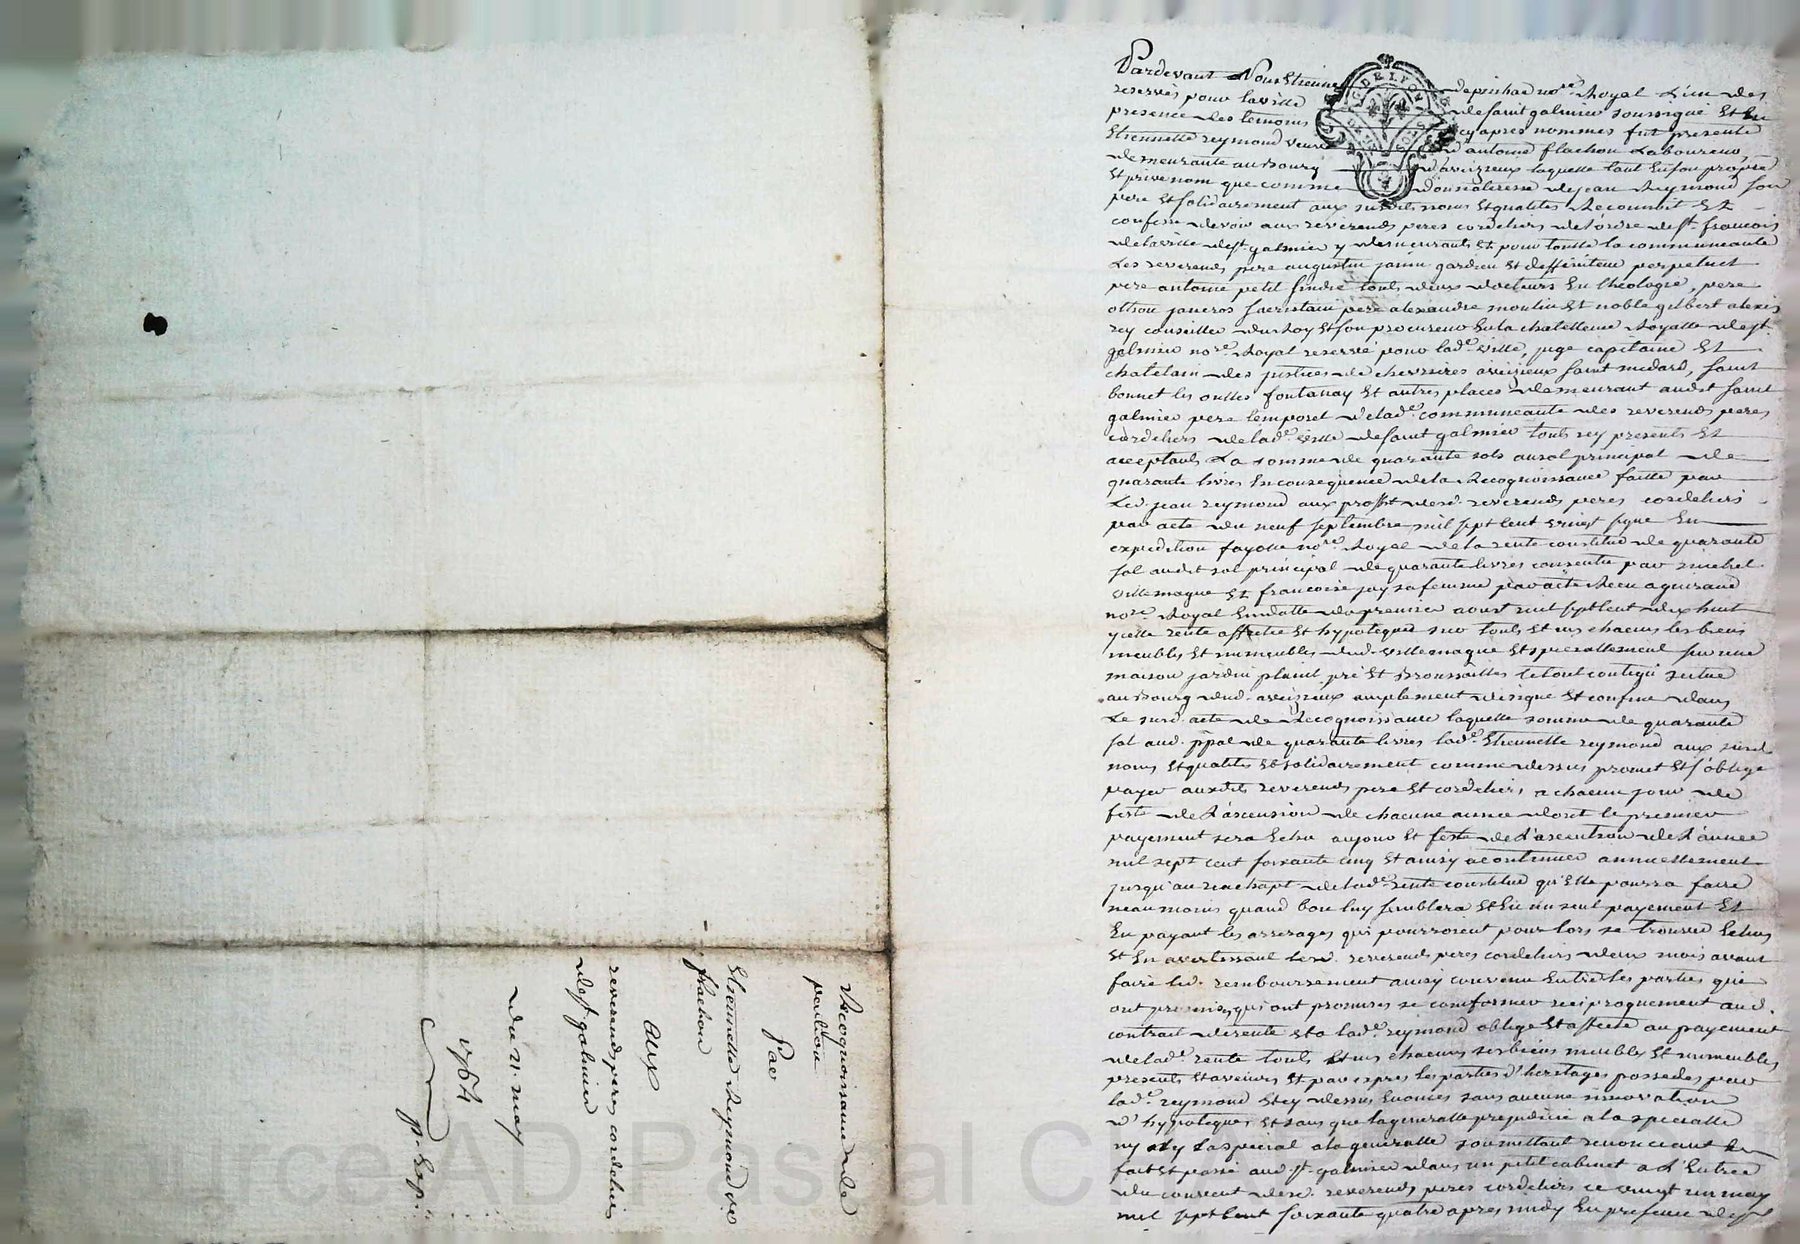 Pardevant Nous Etienne depinhac no.re Royal L'un des
reservés pour la ville de saint galmier soussigné Et En
presence des temoins cy apres nommés fut presente
Etiennette reymond veuve d'antoine flachon Laboureur,
demeurante au Bourg d'aveizieux laquelle tant En son propre
Et privé nom que comme donnataresse de jean Reymond son
pere Et solidairement aux susdits noms Et qualites Reconnoit Et
confesse devoir aux reverends peres cordeliers de l'ordre de st. francois
de la ville de st galmier y demeurants Et pour toutte la communeauté
Les reverends pere augustin janin gardien Et deffiniteur perpetuel
pere antoine petit sindic touts deux docteurs En theologie, pere
othon janeros sacristain pere alexandre moulin Et noble gilbert alexis
rey conseiller du Roy Et son procureur En la chatellenie Royalle de st.
galmier no.re Royal reservé pour lad.e ville, juge capitaine Et
chatelain des justices de chevrieres aveizieux saint medard, saint
bonnet les oulles fontanay Et autres places demeurant audit saint
galmier pere temporel de lad.e communeauté des reverends peres
cordeliers de lad.e ville de saint galmier touts icy presents Et
acceptants La somme de quarante sols au sol principal de
quarante livres En consequence de la Recognoissance faitte par
Led jean reymond au proffit desd. reverends peres cordeliers
par acte du neuf septembre mil sept cent vingt signé En
expedition fayolle no.re Royal de la rente constitué de quarante
sol audit sol principal de quarante livres consentie par michel
villemagne Et francoise jay sa femme par acte Receu aguiraud
no.re Royal En datte du premier aoust mil sept cent dix huit
ycelle rente affectée Et hypotequée sur touts Et uns chacuns les biens
meubles Et immeubles dud. villemagne Et specialement sur une
maison jardin plassit pré Et Broussailles le tout contigû situé
au Bourg dud. aveizieux amplement designé Et confiné dans
Le susd. acte de Recognoissance laquelle somme de quarante
sol aud. ppal de quarante livres lad.e Etiennette reymond aux susd.
noms Et qualites Et solidairement comme dessus promet Et s'oblige
payer auxdits reverends pere Et cordeliers a chacun jour de
feste de L'ascension de chacune année dont le premier
payement sera Echu au jour Et feste de L'ascention de L'année
mil sept cent soixante cinq Et ainsy a continuer annuellement
jusqu'au rachapt de lad.e rente constitué qu'Elle pourra faire
neanmoins quand bon luy semblera Et En un seul payement Et
En payant les arrerages qui pourroient pour lors se trouver Echus
Et En avertissant lesd. reverends peres cordeliers deux mois avant
faire led. remboursement ainsy convenu Entre les parties qui
ont promis, qui ont promises se conformer reciproquement aud.
contrat de rente Et a lad.e reymond obligé Et affecté au payement
de lad.e rente touts Et uns chacuns ses biens meubles Et immeubles
presents Et avenirs Et par exprés les parties d'heritages possedés par
lad.e reymond Et cy dessus Enoncés sans aucune innovation
d'hypoteques Et sans que la generalle prejudicie a la specialle
ny La special a la generalle soumettant renonceant
fait Et passé aud st. galmier dans un petit cabinet a L'Entrée
du couvent desd. reverends peres cordeliers ce vingt un may
mil sept cent soixante quatre apres midy En presence de
Recognoissance de
pention
Par
Etiennette Reymond ve
flachon
aux
reverends peres cordeliers
de st galmier
du 21. may
1764
Source AD Pascal